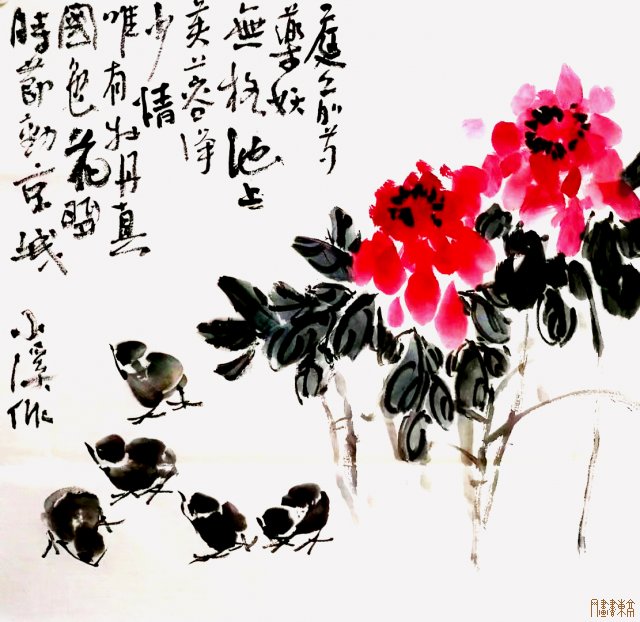 庭前芍
藥妖
無格池上
芙蓉淨
少情
唯有牡丹真
國色花開
時節動京城
小溪作